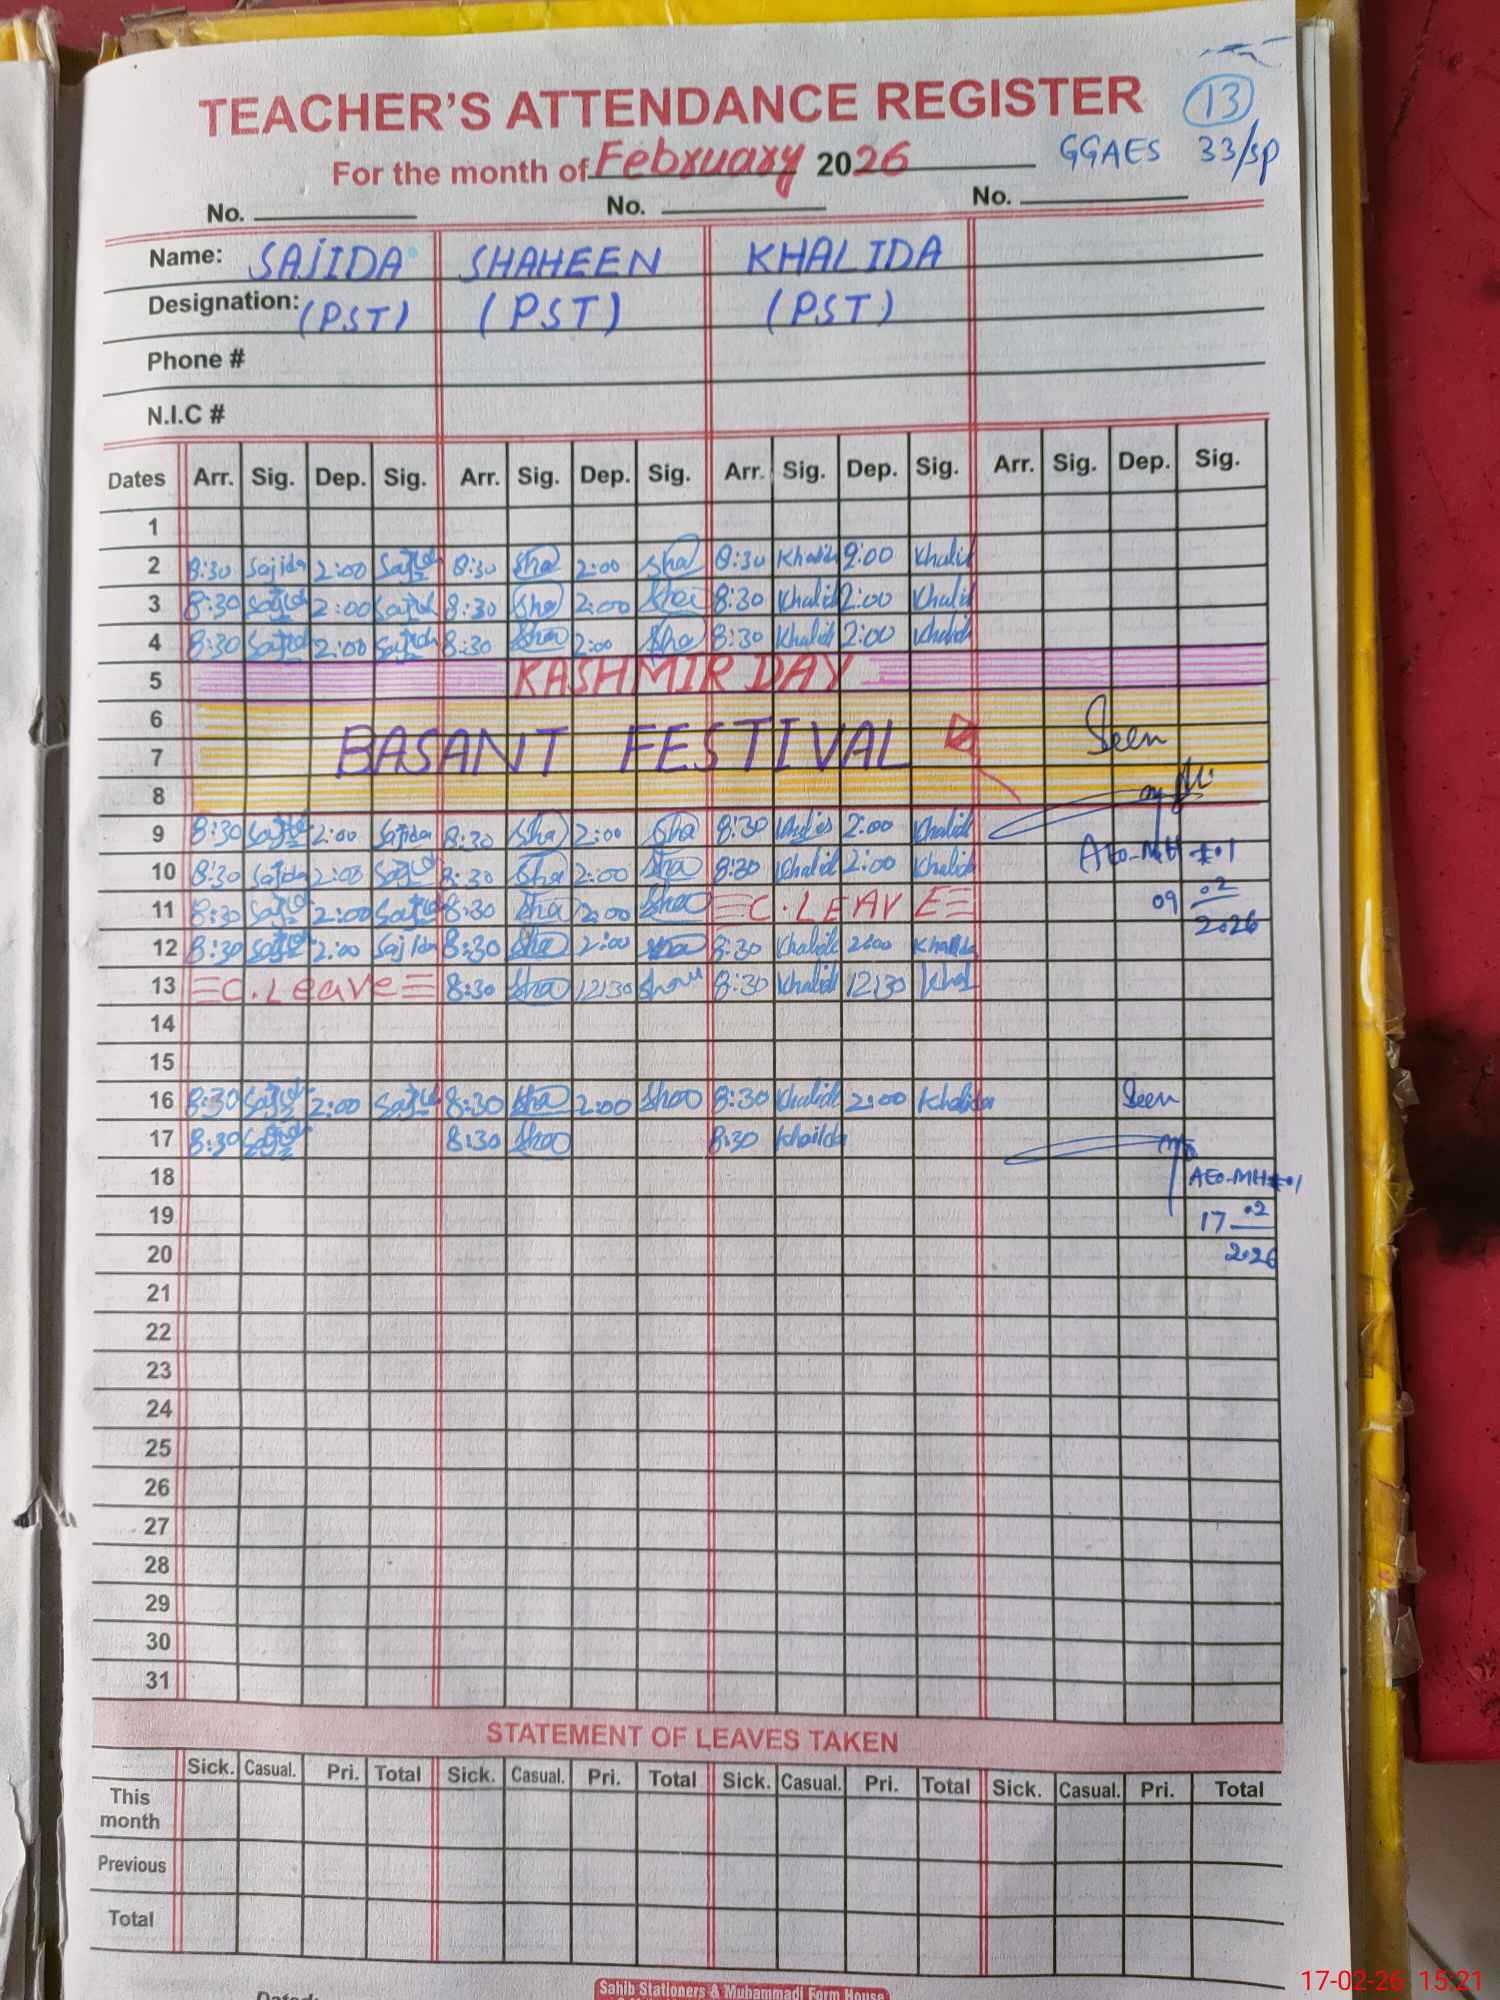 13
TEACHER'S ATTENDANCE REGISTER
For the month of February 2026 GGAES 33/SP
No. No. No.
Name: SAJIDA SHAHEEN KHALIDA
Designation: (PST) (PST) (PST)
Phone #
N.I.C #
Dates Arr. Sig. Dep. Sig. Arr. Sig. Dep. Sig. Arr. Sig. Dep. Sig. Arr. Sig. Dep. Sig.
1
2 8:30 Sajida 2:00 8:30 Sha 2:00 Sha 8:30 Khalid 2:00 Khalid
3 8:30 2:00 8:30 Sha 2:00 8:30 Khalid 2:00 Khalid
4 8:30 2:00 8:30 Sha 2:00 Sha 8:30 Khalid 2:00 Khalid
5 KASHMIR DAY
6
7 BASANT FESTIVAL Seen
8
9 8:30 2:00 Sajida 8:30 Sha 2:00 Sha 8:30 2:00 Khalid
10 8:30 Sajida 2:00 8:30 Sha 2:00 Sha 8:30 Khalid 2:00 Khalid
AEO-MH
11 8:30 2:00 8:30 Sha 2:00 C.LEAVE
09 02
2026
12 8:30 2:00 Sajida 8:30 Sha 2:00 8:30 Khalid 2:00 Khalida
13 C.Leave 8:30 Sha 12:30 8:30 Khalid 12:30 Khal
14
15
16 8:30 2:00 8:30 Sha 2:00 Shaa 8:30 Khalid 2:00 Khalida Seen
17 8:30 8:30 Shaa 8:30 Khailda
18 AEO-MH
19 17 02
20 2026
21
22
23
24
25
26
27
28
29
30
31
STATEMENT OF LEAVES TAKEN
Sick. Casual. Pri. Total Sick. Casual. Pri. Total Sick. Casual. Pri. Total Sick. Casual. Pri. Total
This
month
Previous
Total
Sahib Stationers & Muhammadi Form House
17-02-26 15:21